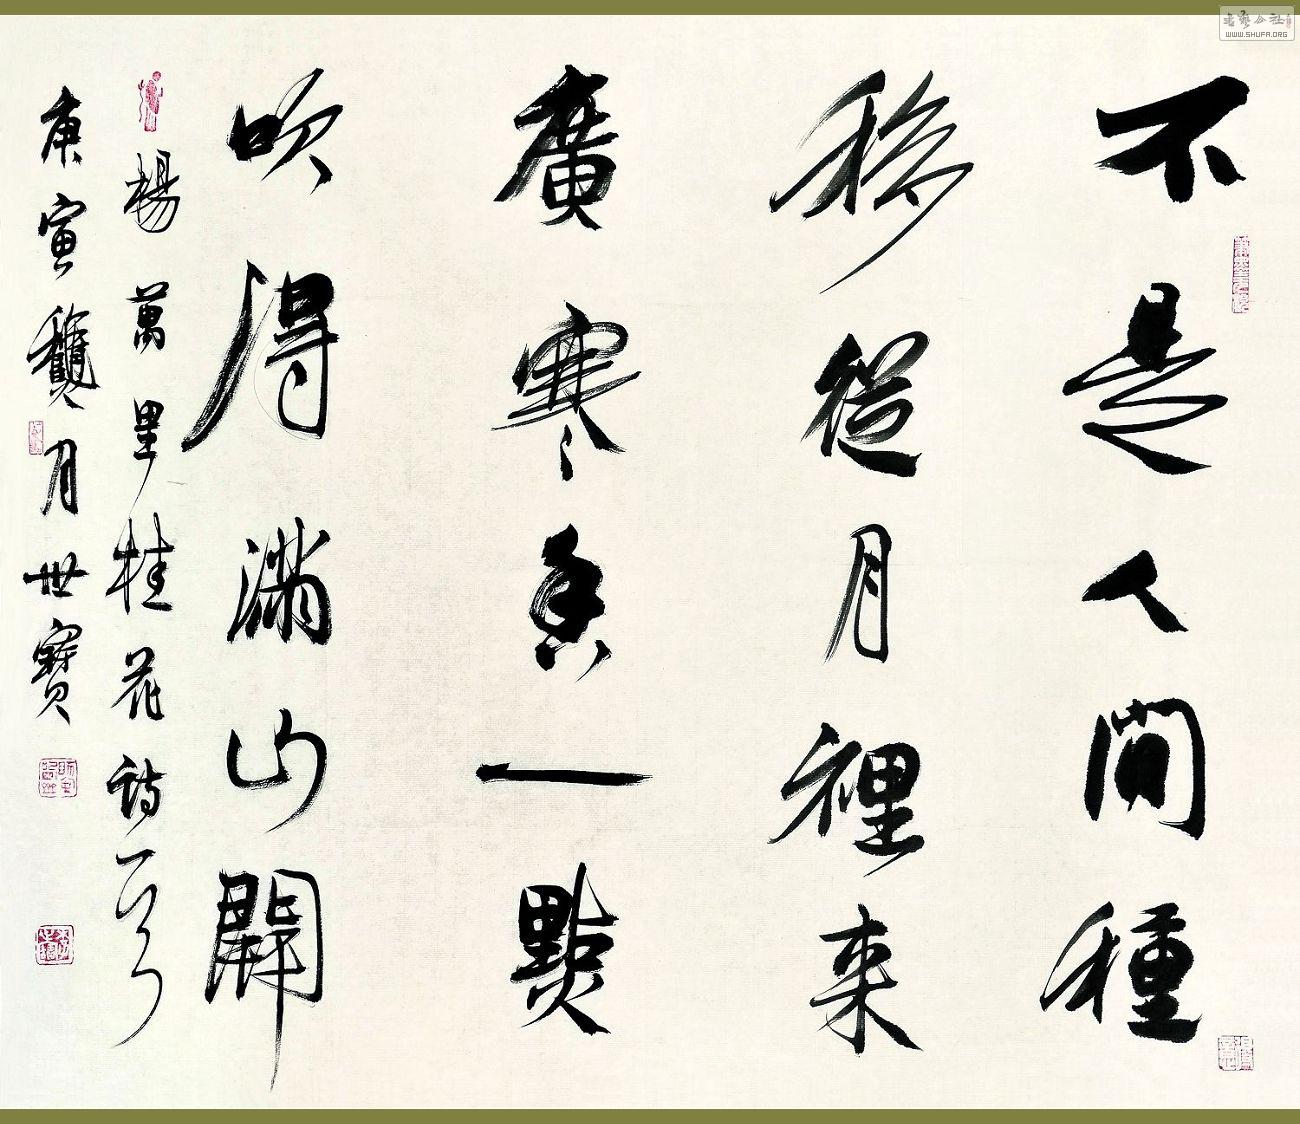 不是人間種
移從月裡来
廣寒香一點
吹得滿山開
楊萬里桂花詩一首
庚寅龝月世寶
WWW.SHUFA.ORG